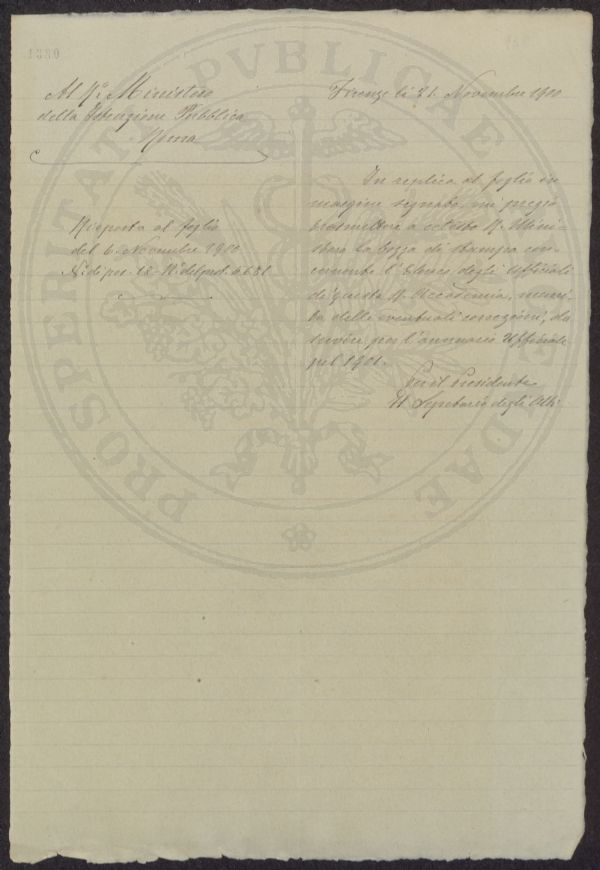 1380
Al R.º Ministero
della Istruzione Pubblica
Roma
Firenze li 21. Novembre 1900
Risposta al foglio
del 6. Novembre 1900
N. di pos. 12 - N. del prot. 4681
In replica al foglio in
margine segnato, mi pregio
trasmettere a cotesto R. Mini-
stero la bozza di stampa con-
cernente l'Elenco degli Ufficiali
di questa R. Accademia, muni-
ta delle eventuali correzioni, da
servire per l'annuario Ufficiale
pel 1901.
Per il Presidente
Il Segretario degli Atti
PROSPERITATI PVBLICAE